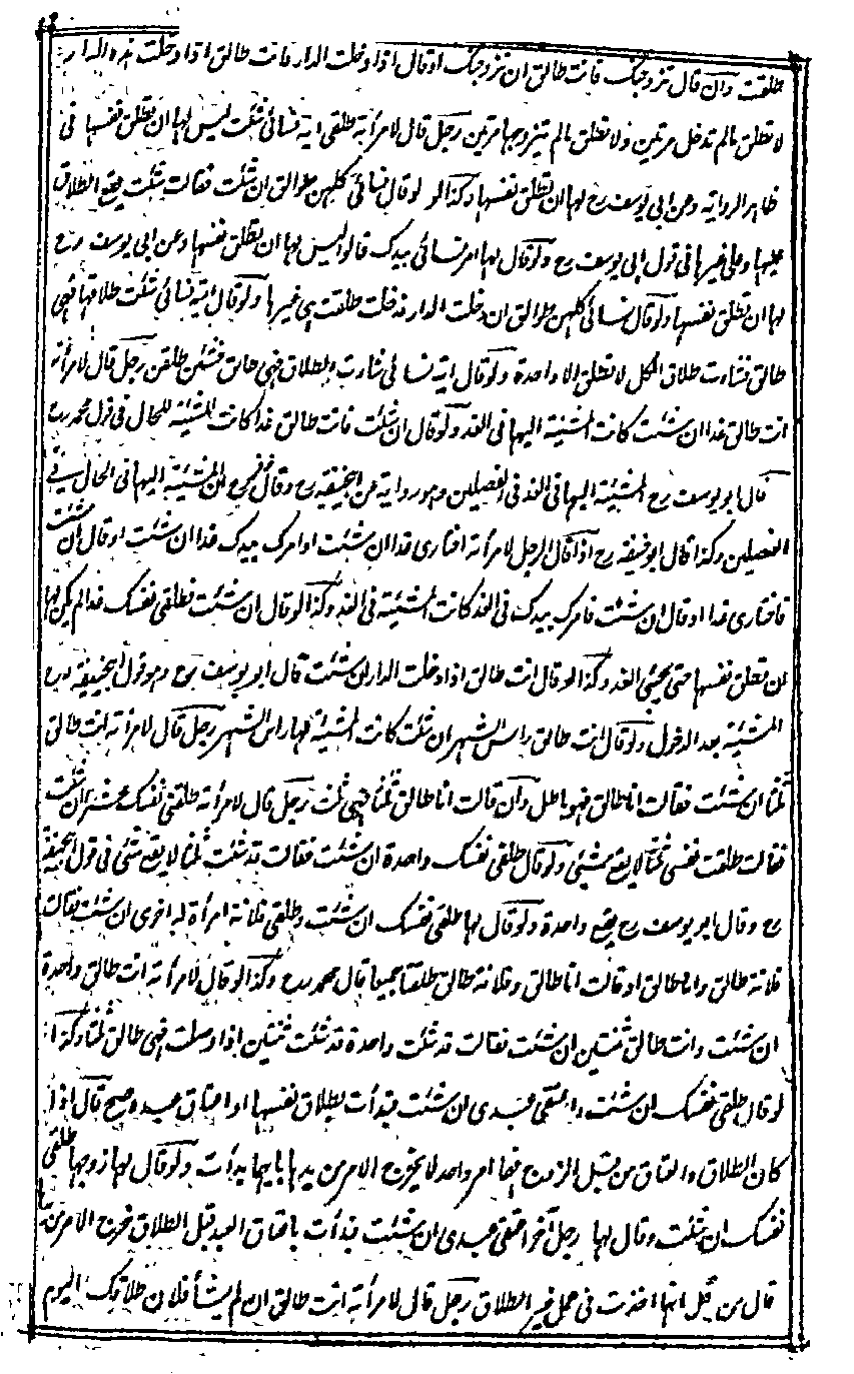 طلقت وان قال تزوجتك فانت طالق ان تزوجتك او قال اذا دخلت الدار فانت طالق اذا دخلت هذه الدار
لا تطلق ما لم تدخل مرتين ولا تطلق ما لم يتزوجها مرتين رجل قال لامرأته طلقي اية نسائي شئت ليس لها ان تطلق نفسها في
ظاهر الرواية وعن ابي يوسف رح لها ان تطلق نفسها وكذا لو قال نسائي كلهن طوالق ان شئت فقالت شئت يقع الطلاق
عليها وعلى غيرها في قول ابي يوسف رح ولو قال لها امر نسائي بيدك قالوا ليس لها ان تطلق نفسها وعن ابي يوسف رح
لها ان تطلق نفسها ولو قال نسائي كلهن طوالق ان دخلت الدار فدخلت طلقت هي وغيرها ولو قال اية نسائي شئت طلاقها فهي
طالق فشاءت طلاق الكل لا تطلق الا واحدة ولو قال اية نسائي شاءت الطلاق فهي طالق فشئن طلقن رجل قال لامرأته
انت طالق غدا ان شئت كانت المشيئة اليها في الغد ولو قال ان شئت فانت طالق غدا كانت المشيئة للحال في قول محمد رح
قال ابو يوسف رح المشيئة اليها في الغد في الفصلين وهو رواية عن ابي حنيفة رح وقال زفر رح ان المشيئة اليها في الحال في
الفصلين وكذا قال ابو حنيفة رح اذا قال الرجل لامرأته اختاري غدا ان شئت او امرك بيدك غدا ان شئت او قال ان شئت
فاختاري غدا او قال ان شئت فامرك بيدك في الغد كانت المشيئة في الغد وكذا لو قال ان شئت فطلقي نفسك غدا لم يكن لها
ان تطلق نفسها حتى يجيئ الغد وكذا لو قال انت طالق اذا دخلت الدار ان شئت قال ابو يوسف رح وهو قول ابي حنيفة رح
المشيئة بعد الدخول ولو قال انت طالق راس الشهر ان شئت كانت المشيئة لها راس الشهر رجل قال لامرأته انت طالق
ثلثا ان شئت فقالت انا طالق فهو باطل وان قالت انا طالق ثلثا فهي ثلث رجل قال لامرأته طلقي نفسك عشرا ان شئت
فقالت طلقت نفسي ثلثا لا يقع شيئ ولو قال طلقي نفسك واحدة ان شئت فقالت قد شئت ثلثا لا يقع شيئ في قول ابي حنيفة
رح وقال ابو يوسف رح يقع واحدة ولو قال لها طلقي نفسك ان شئت وطلقي فلانة امرأة له اخرى ان شئت فقالت
فلانة طالق وانا طالق او قالت انا طالق وفلانة طالق طلقتا جميعا قال محمد رح وكذا لو قال لامرأته انت طالق واحدة
ان شئت وانت طالق ثنتين ان شئت فقالت قد شئت واحدة قد شئت ثنتين اذا وصلت فهي طالق ثلثا وكذا
لو قال طلقي نفسك ان شئت واعتقي عبدي ان شئت فبدأت بطلاق نفسها او اعتاق عبده صح قال اذا
كان الطلاق والعتاق من قبل الزوج فهما امر واحد لا يخرج الامر من يدها بايهما بدأت ولو قال لها زوجها طلقي
نفسك ان شئت وقال لها رجل آخر اعتقي عبدي ان شئت فبدأت باعتاق العبد قبل الطلاق خرج الامر من يدها
قال من قبل انها اخذت في عمل غير الطلاق رجل قال لامرأته انت طالق ان لم يشأ فلان طلاقك اليوم